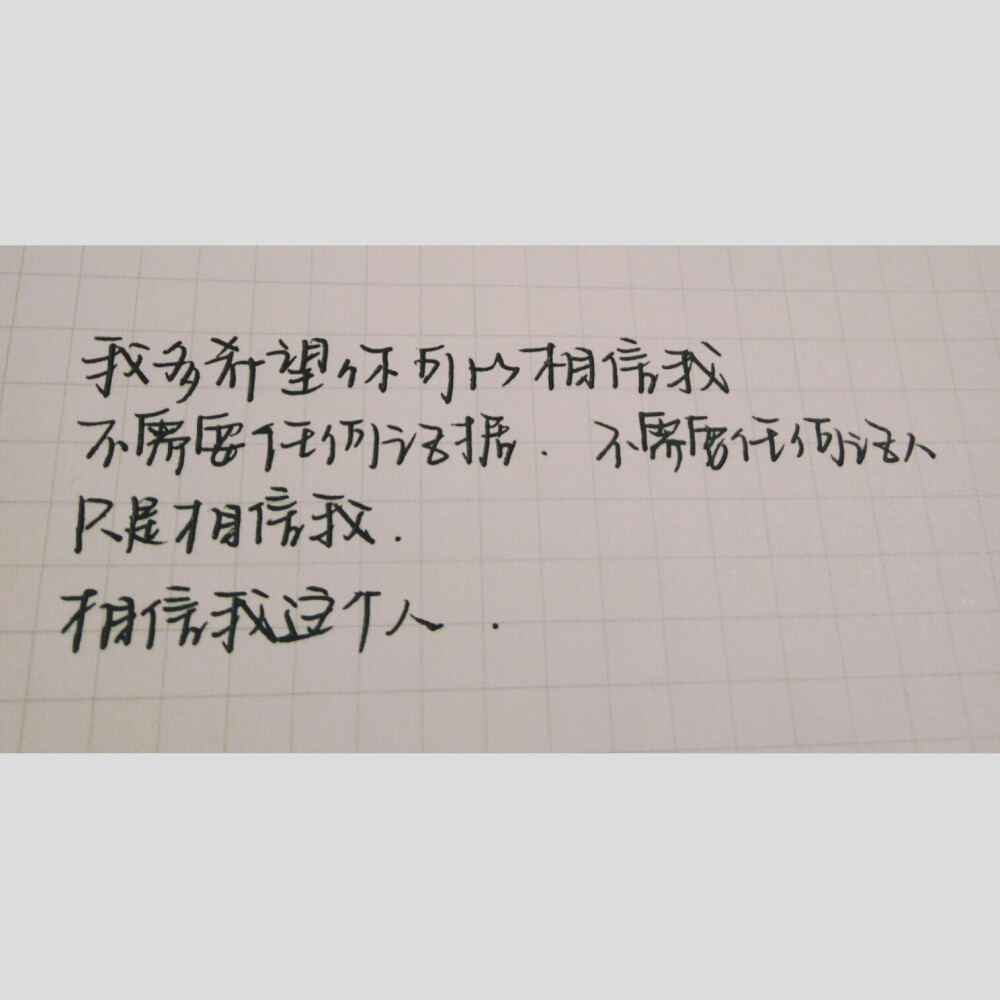 我多希望你可以相信我
不需要任何证据. 不需要任何证人
只是相信我.
相信我这个人.